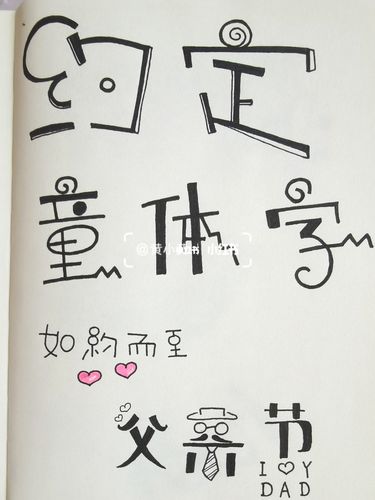 约定
童体字
如約而至
父亲节
I ♡ Y
DAD